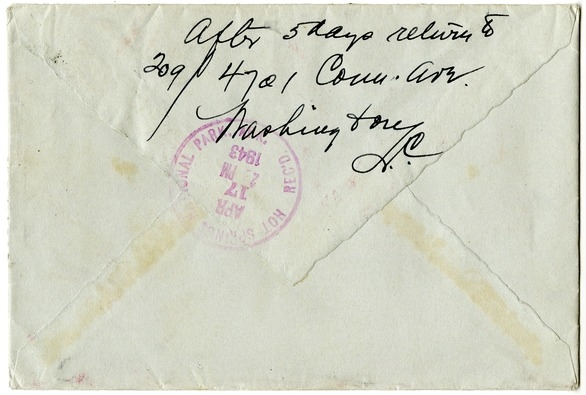 After 5 days return to
209/4701 Conn. Ave.
Washington
D.C.
REC'D. HOT SPRINGS NATIONAL PARK
APR
17
2 PM
1943